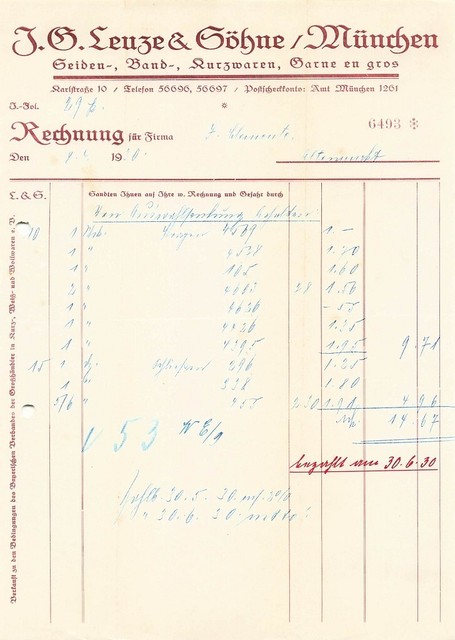 J. G. Leuze & Söhne / München
Seiden-, Band-, Kurzwaren, Garne en gros
Karlstraße 10 / Telefon 56695, 56697 / Postscheckkonto: Amt München 1261
J.-Fol.
6493 ✻
Rechnung für Firma
Den 19
L. & S.
Sandten Ihnen auf Ihre w. Rechnung und Gefahr durch
Von Auswahlsendung behalten
10 1 4589 1.–
1 " 4528 1.20
1 " 165 1.60
2 " 4603 28 1.56
1 " 4626 –.55
1 " 4426 1.35
1 " 4395 1.95 9.71
15 1 296 1.25
1 " 328 1.80
5/6 " 455 2.30 1.91 4.96
14.67
53
bezahlt am 30.6.30
30.5.30
" 30.6.30 netto
Verkauft zu den Bedingungen des Bayerischen Verbandes der Großhändler in Kurz-, Weiß- und Wollwaren e. V.